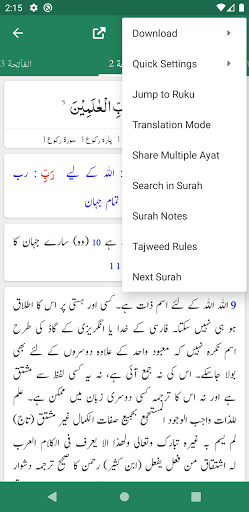 2:15
الفَاتِحَة 3
ة 2
Download
Quick Settings
Jump to Ruku
Translation Mode
Share Multiple Ayat
Search in Surah
Surah Notes
Tajweed Rules
Next Surah
بِّ الْعٰلَمِيْنَ
پارہ رکوع 1 سورة رکوع 1
اللہ کے لیے رَبِّ : رب
تمام جہان
ہے 10 (وہ) سارے جہان کا
11
9 اللہ اللہ کے لئے اسم ذات ہے۔ کسی اور ہستی پر اس کا اطلاق
ہو ہی نہیں سکتا۔ فارسی کے خدا یا انگریزی کے گاڈ کی طرح
اسم نکرہ نہیں کہ معبود واحد کے علاوہ دوسروں کے لئے بھی
بولا جاسکے۔ اس کی نہ جمع آتی ہے، نہ یہ کسی لفظ سے مشتق
ہے، نہ اس کا صحیح ترجمہ کسی دوسری زبان میں ممکن ہے۔ علم
للذات واجب الوجود المستجمع بجمیع صفات الکمال غیر مشتق (تاج)
لم یسم بہ غیرہ تبارک وتعالی ولھذا الا یعرف فی الکلام العرب
لہ اشتقاق من فعل یفعل (ابن کثیر) رحمن کا صحیح ترجمہ دشوار